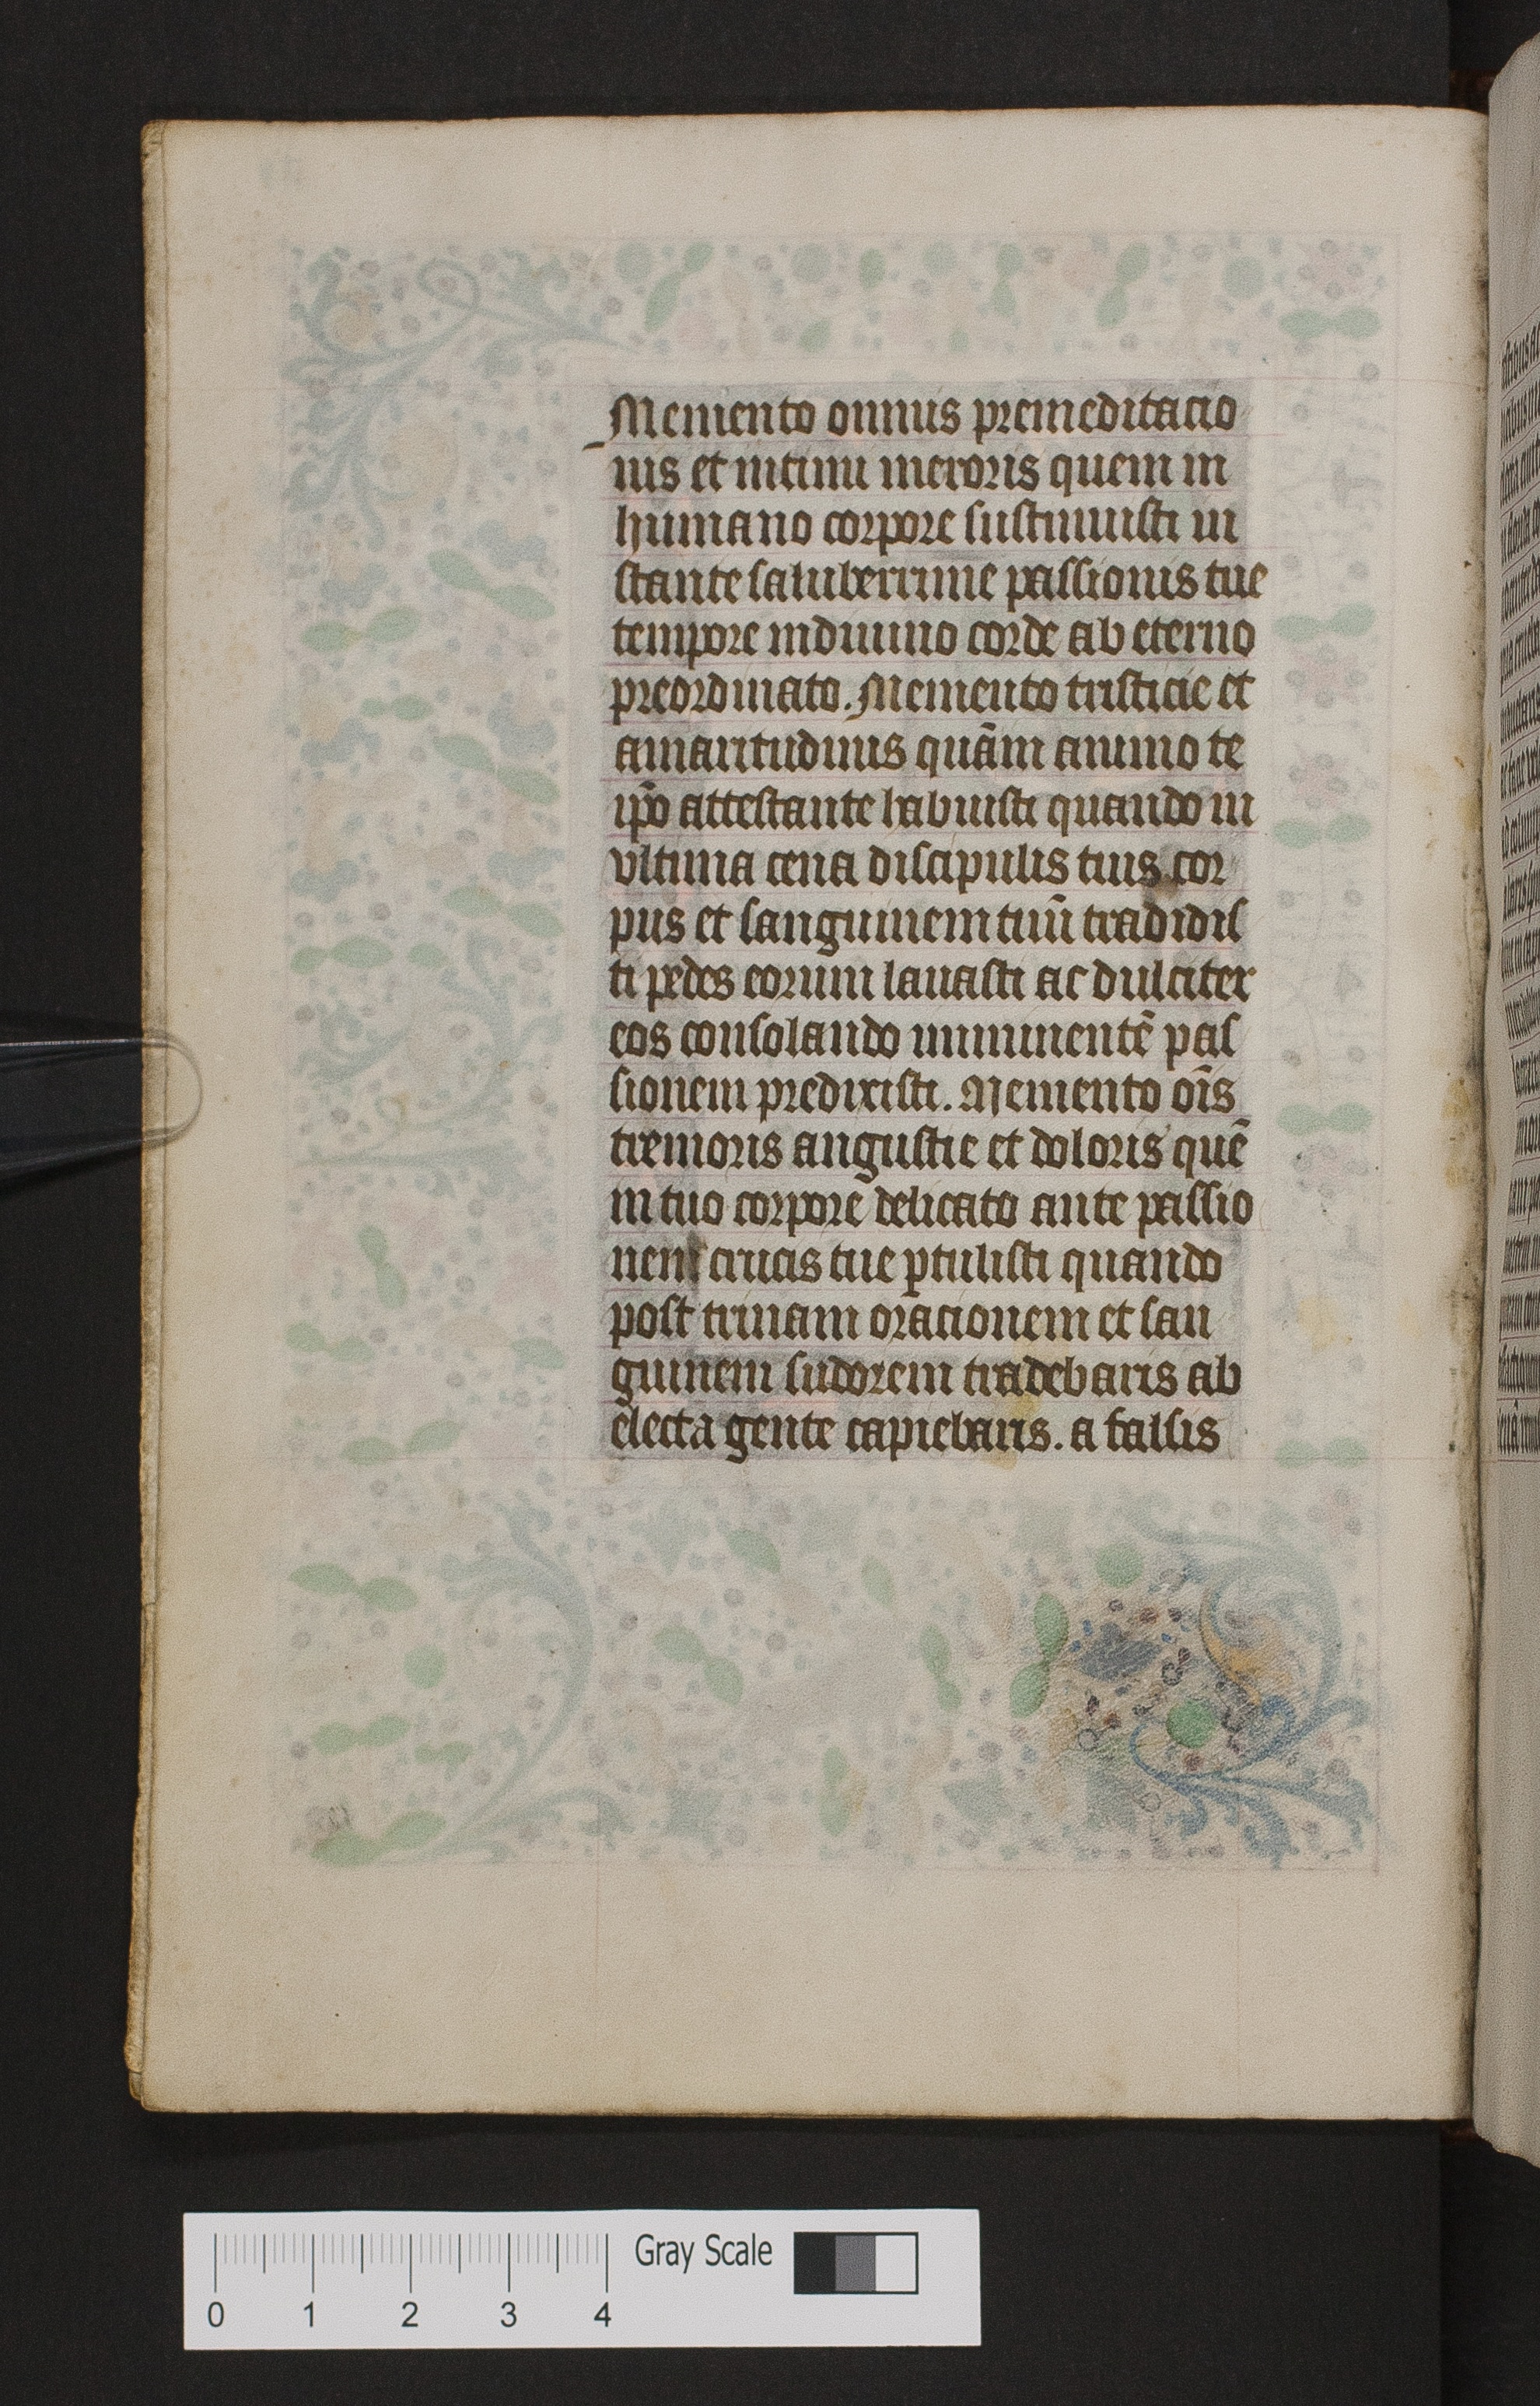 Memento omnus premeditacio
nis et intimi meroris quem in
humano corpore sustinuisti in
stante saluberrime passionis tue
tempore in diuino corde ab eterno
preordinato. Memento tristicie et
amaritudinis quām animo te
ip̄o attestante habuisti quando in
vltima cena discipulis tuis cor
pus et sanguinem tuū tradidis
ti pedes eorum lauasti ac dulciter
eos consolando imminentē pas
sionem predixisti. Memento oīs
tremoris angustie et doloris quē
in tuo corpore delicato ante passio
nem crucis tue ꝑtulisti quando
post trinam oracionem et san
guinem sudorem tradebaris ab
electa gente capiebaris. a falsis
Gray Scale
0 1 2 3 4